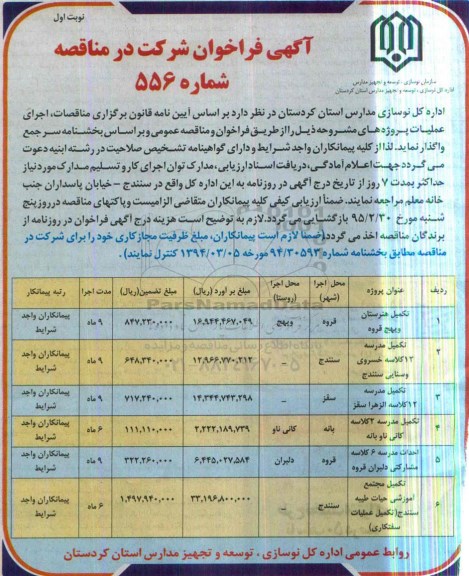 نوبت اول
آگهی فراخوان شرکت در مناقصه
شماره ۵۵۶
سازمان نوسازی ، توسعه و تجهیز مدارس
اداره کل نوسازی ، توسعه و تجهیز مدارس استان کردستان
اداره کل نوسازی مدارس استان کردستان در نظر دارد بر اساس آیین نامه قانون برگزاری مناقصات، اجرای
عملیات پروژه های مشروحه ذیل را از طریق فراخوان و مناقصه عمومی و بر اساس بخشنامه سر جمع
واگذار نماید. لذا از کلیه پیمانکاران واجد شرایط و دارای گواهینامه تشخیص صلاحیت در رشته ابنیه دعوت
می گردد جهت اعلام آمادگی، دریافت اسناد ارزیابی، مدارک توان اجرای کار و تسلیم مدارک مورد نیاز
حداکثر بمدت ۷ روز از تاریخ درج آگهی در روزنامه به این اداره کل واقع در سنندج - خیابان پاسداران جنب
خانه معلم مراجعه نمایند. ضمناً ارزیابی کیفی کلیه پیمانکاران متقاضی الزامیست و پاکتهای مناقصه در روز پنج
شنبه مورخ ۹۵/۲/۳۰ بازگشایی می گردد. لازم به توضیح است هزینه درج آگهی فراخوان در روزنامه از
برندگان مناقصه اخذ می گردد(ضمناً لازم است پیمانکاران، مبلغ ظرفیت مجاز کاری خود را برای شرکت در
مناقصه مطابق بخشنامه شماره ۹۴/۳۰۵۹۳ مورخه ۱۳۹۴/۰۳/۰۵ کنترل نمایند).
ردیف عنوان پروژه محل اجرا (شهر) محل اجرا (روستا) مبلغ بر آورد (ریال) مبلغ تضمین(ریال) مدت اجرا رتبه پیمانکار
۱ تکمیل هنرستان ویهج قروه قروه ویهج ۱۶,۹۴۴,۴۶۷,۰۴۹ ۸۴۷,۲۳۰,۰۰۰ ۹ ماه پیمانکاران واجد شرایط
۲ تکمیل مدرسه ۱۲کلاسه خسروی وستایی سنندج سنندج _ ۱۲,۹۶۶,۳۷۰,۲۱۲ ۶۴۸,۳۴۰,۰۰۰ ۹ ماه پیمانکاران واجد شرایط
۳ تکمیل مدرسه ۱۲کلاسه الزهرا سقز سقز _ ۱۴,۳۴۴,۷۴۳,۲۹۸ ۷۱۷,۲۴۰,۰۰۰ ۹ ماه پیمانکاران واجد شرایط
۴ تکمیل مدرسه ۲کلاسه کانی ناو بانه بانه کانی ناو ۲,۲۲۲,۱۸۹,۷۳۹ ۱۱۱,۱۱۰,۰۰۰ ۶ ماه پیمانکاران واجد شرایط
۵ احداث مدرسه ۶ کلاسه مشارکتی دلبران قروه قروه دلبران ۶,۴۴۵,۰۲۷,۵۸۴ ۳۲۲,۲۶۰,۰۰۰ ۹ ماه پیمانکاران واجد شرایط
۶ تکمیل مجتمع آموزشی حیات طیبه سنندج(تکمیل عملیات سفتکاری) سنندج _ ۳۳,۱۹۶,۸۰۰,۰۰۰ ۱,۴۹۷,۹۴۰,۰۰۰ ۶ ماه پیمانکاران واجد شرایط
روابط عمومی اداره کل نوسازی ، توسعه و تجهیز مدارس استان کردستان